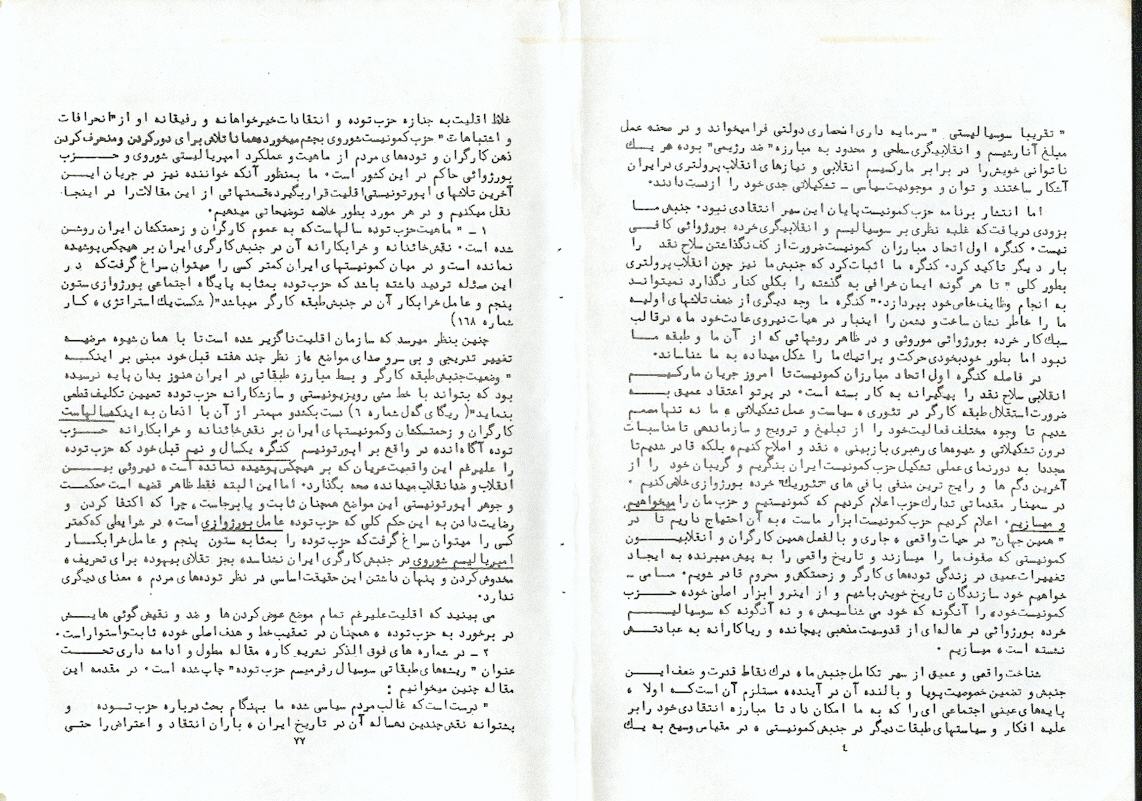 " تقریبا سوسیالیستی " سرمایه داری انحصاری دولتی فرا میخواند و در صحنه عمل
مبلغ آنارشیسم و انقلابیگری سطحی و محدود به مبارزه " ضد رژیمی " بوده هر یک
ناتوانی خویش را در برابر مارکسیسم انقلابی و نیازهای انقلاب پرولتری در ایران
آشکار ساختند و توان و موجودیت سیاسی ـ تشکیلاتی جدی خود را از دست دادند.
اما انتشار برنامه حزب کمونیست پایان این سیر انتقادی نبود. جنبش ما
بزودی دریافت که غلبه نظری بر سوسیالیسم و انقلابیگری خرده بورژوائی کافی
نیست. کنگره اول اتحاد مبارزان کمونیست ضرورت از کف نگذاشتن سلاح نقد را
بار دیگر تاکید کرد. کنگره ما اثبات کرد که جنبش ما نیز چون انقلاب پرولتری
بطور کلی " تا هر گونه ایمان خرافی به گذشته را بکلی کنار نگذارد نمیتواند
به انجام وظایف خاص خود بپردازد." کنگره ما وجه دیگری از ضعف تلاشهای اولیه
ما را خاطر نشان ساخت و دشمن را اینبار در هیات نیروی عادت خود ما، در قالب
سبک کار خرده بورژوائی موروثی و در ظاهر روشهائی که از آن ما و طبقه ما
نبود اما بطور خودبخودی حرکت و پراتیک ما را شکل میداد، به ما شناساند.
در فاصله کنگره اول اتحاد مبارزان کمونیست تا امروز جریان مارکسیسم
انقلابی سلاح نقد را پیگیرانه به کار بسته است. در پرتو اعتقاد عمیق به
ضرورت استقلال طبقه کارگر در تئوری، سیاست و عمل تشکیلاتی، ما نه تنها مصمم
شدیم تا وجوه مختلف فعالیت خود را از تبلیغ و ترویج و سازماندهی تا مناسبات
درون تشکیلاتی و شیوه‌های رهبری بازبینی، نقد و اصلاح کنیم، بلکه قادر شدیم تا
مجددا به دورنمای عملی تشکیل حزب کمونیست ایران بنگریم و گریبان خود را از
آخرین دگم ها و رایج ترین منفی بافی های "تئوریک" خرده بورژوازی خلاص کنیم.
در سمینار مقدماتی تدارک حزب اعلام کردیم که کمونیستیم و حزب مان را میخواهیم،
و میسازیم. اعلام کردیم حزب کمونیست ابزار ماست، به آن احتیاج داریم تا در
" همین جهان " در حیات واقعی، جاری و بالفعل همین کارگران و انقلابیون
کمونیستی که صفوف ما را میسازند و تاریخ واقعی را به پیش میبرند، به ایجاد
تغییرات عمیق در زندگی توده‌های کارگر و زحمتکش و محروم قادر شویم. ما می ـ
خواهیم خود سازندگان تاریخ خویش باشیم و از اینرو ابزار اصلی خود، حزب
کمونیست خود، را آنگونه که خود می شناسیمش، و نه آنگونه که سوسیالیسم
خرده بورژوائی در هاله‌ای از قدوسیت مذهبی پیچانده و ریاکارانه به عبادتش
نشسته است، میسازیم.
شناخت واقعی و عمیق از سیر تکامل جنبش ما، درک نقاط قدرت و ضعف این
جنبش و تضمین خصوصیت پویا و بالنده آن در آینده، مستلزم آن است که اولا،
پایه‌های عینی اجتماعی ای را که به ما امکان داد تا مبارزه انتقادی خود را بر
علیه افکار و سیاستهای طبقات دیگر در جنبش کمونیستی، در مقیاس وسیع به یک
٤
غلاظ اقلیت به جنازه حزب توده و انتقادات خیرخواهانه و رفیقانه او از "انحرافات
و اشتباهات " حزب کمونیست شوروی بچشم میخورد، همانا تلاش برای دور کردن و منحرف کردن
ذهن کارگران و توده‌های مردم از ماهیت و عملکرد امپریالیستی شوروی و حزب
بورژوائی حاکم در این کشور است. ما بمنظور آنکه خواننده نیز در جریان این
آخرین تلاشهای اپورتونیستی اقلیت قرار بگیرد، قسمتهائی از این مقالات را در اینجا
نقل میکنیم و در هر مورد بطور خلاصه توضیحاتی میدهیم.
١ ـ " ماهیت حزب توده سالهاست که به عموم کارگران و زحمتکشان ایران روشن
شده است. نقش خائنانه و خرابکارانه آن در جنبش کارگری ایران بر هیچکس پوشیده
نمانده است و در میان کمونیستهای ایران کمتر کسی را میتوان سراغ گرفت که در
این مسئله تردید داشته باشد که حزب توده بمثابه پایگاه اجتماعی بورژوازی ستون
پنجم و عامل خرابکار آن در جنبش طبقه کارگر میباشد"( شکست یک استراتژی، کار
شماره ١٦٨)
چنین بنظر میرسد که سازمان اقلیت ناگزیر شده است تا با همان شیوه مرضیه
تغییر تدریجی و بی سر و صدای مواضع، از نظر چند هفته قبل خود مبنی بر اینکه
" وضعیت جنبش طبقه کارگر و بسط مبارزه طبقاتی در ایران هنوز بدان پایه نرسیده
بود که بتواند با خط مشی رویزیونیستی و سازشکارانه حزب توده تعیین تکلیف قطعی
بنماید"( ریگای گه‌ل شماره ٦) دست بکشد و مهمتر از آن با اذعان به اینکه سالهاست
کارگران و زحمتکشان و کمونیستهای ایران بر نقش خائنانه و خرابکارانه حزب
توده آگاه‌اند، در واقع بر اپورتونیسم کنگره یکسال و نیم قبل خود که حزب توده
را علیرغم این واقعیت عریان که بر هیچکس پوشیده نمانده است، نیروئی بین
انقلاب و ضد انقلاب میدانند صحه بگذارد. اما این البته فقط ظاهر قضیه است، محکمت
و جوهر اپورتونیستی این مواضع همچنان ثابت و پابرجاست، چرا که اکتفا کردن و
رضایت دادن به این حکم کلی که حزب توده عامل بورژوازی است، در شرایطی که کمتر
کسی را میتوان سراغ گرفت که حزب توده را بمثابه ستون پنجم و عامل خرابکار
امپریالیسم شوروی در جنبش کارگری ایران نشناسد، بجز تقلای بیهوده برای تحریف،
مخدوش کردن و پنهان داشتن این حقیقت اساسی در نظر توده‌های مردم، معنای دیگری
ندارد.
می بینید که اقلیت علیرغم تمام موضع عوض کردن ها و ضد و نقیض گوئی هایش
در برخورد به حزب توده، همچنان در تعقیب خط و هدف اصلی خود، ثابت و استوار است.
٢ ـ در شماره های فوق الذکر نشریه کار، مقاله مطول و ادامه داری تحت
عنوان " ریشه‌های طبقاتی سوسیال رفرمیسم حزب توده" چاپ شده است. در مقدمه این
مقاله چنین میخوانیم :
" درست است که غالب مردم سیاسی شده ما بهنگام بحث درباره حزب توده و
پشتوانه نقش چندین دهساله آن در تاریخ ایران، باران انتقاد و اعتراض را حتی
٧٧